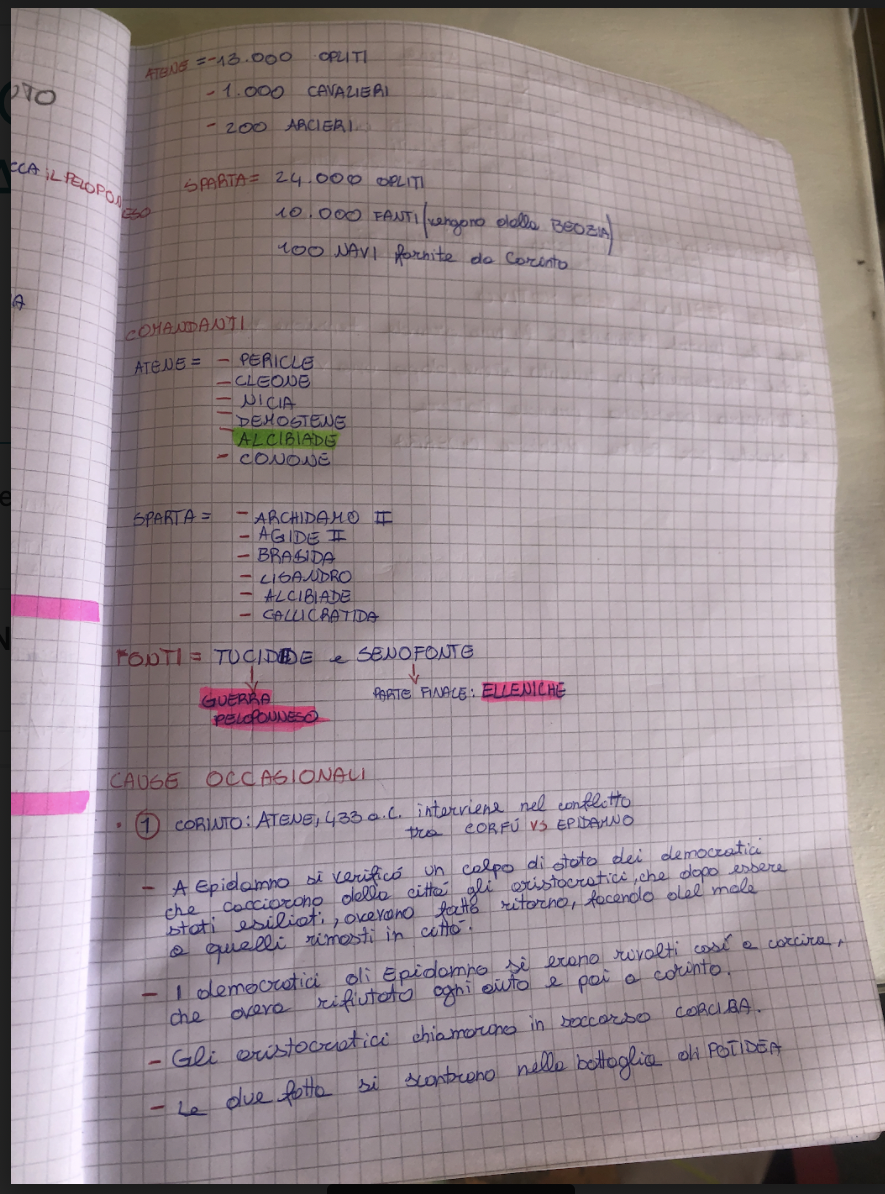 OTO
CCA IL PELOPONNESO
A
ATENE = - 13.000 OPLITI
- 1.000 CAVALIERI
- 200 ARCIERI
SPARTA = 24.000 OPLITI
10.000 FANTI (vengono dalla BEOZIA)
100 NAVI fornite da Corinto
COMANDANTI
ATENE = - PERICLE
- CLEONE
- NICIA
- DEMOSTENE
- ALCIBIADE
- CONONE
SPARTA = - ARCHIDAMO II
- AGIDE II
- BRASIDA
- LISANDRO
- ALCIBIADE
- CALLICRATIDA
FONTI = TUCIDIDE e SENOFONTE
GUERRA PARTE FINALE: ELLENICHE
PELOPONNESO
CAUSE OCCASIONALI
• 1 CORINTO: ATENE, 433 a.C. interviene nel conflitto
tra CORFÚ VS EPIDAMNO
- A Epidamno si verificó un colpo di stato dei democratici
che cacciarono dalla cittá gli aristocratici, che dopo essere
stati esiliati, avevano fatto ritorno, facendo del male
a quelli rimasti in cittá.
- I democratici di Epidamno si erano rivolti cosí a corcira,
che aveva rifiutato ogni aiuto e poi a corinto.
- Gli aristocratici chiamarono in soccorso CORCIRA.
- Le due flotta si scontrano nella battaglia di POTIDEA